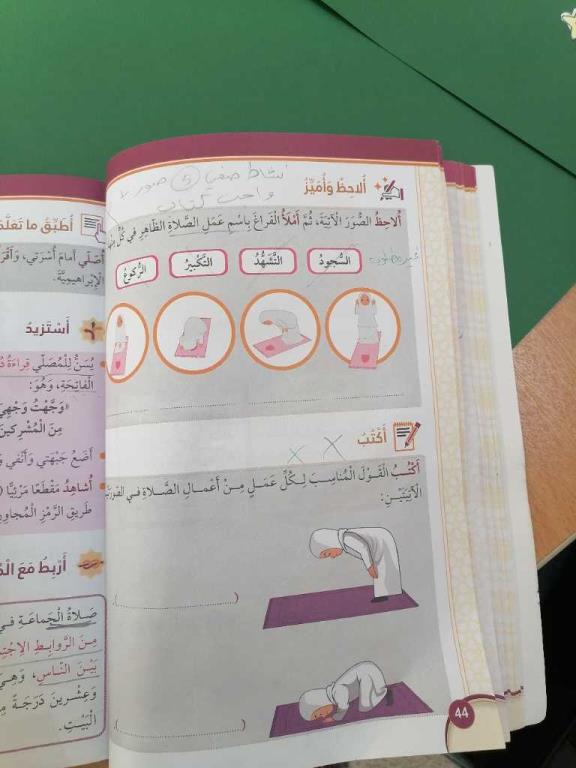 أُلاحِظُ وَأُمَيِّزُ
نشاط صفي ⑤ صور
واجب كتاب
أُلاحِظُ الصُّوَرَ الْآتِيَةَ، ثُمَّ أَمْلَأُ الْفَراغَ بِاسْمِ عَمَلِ الصَّلاةِ الظّاهِرِ في كُلٍّ
السُّجودُ
التَّشَهُّدُ
التَّكْبيرُ
الرُّكوعُ
أَكْتُبُ
أَكْتُبُ الْقَوْلَ الْمُناسِبَ لِكُلِّ عَمَلٍ مِنْ أَعْمالِ الصَّلاةِ في
الْآتِيَتَيْنِ:
44
أُطَبِّقُ ما تَعَلَّمْ
أُصَلّي أَمامَ أُسْرَتي، وَأَقْرَ
الْإِبْراهيمِيَّةَ.
أَسْتَزيدُ
يُسَنُّ لِلْمُصَلّي قِراءَةُ
الْفاتِحَةِ، وَهُوَ:
«وَجَّهْتُ وَجْهِيَ
مِنَ الْمُشْرِكينَ
أَضَعُ جَبْهَتي وَأَنْفي
أُشاهِدُ مَقْطَعًا مَرْئِيًّا
طَريقِ الرَّمْزِ الْمُجاوِرِ
أَرْبِطُ مَعَ
صَلاةُ الْجَماعَةِ في
مِنَ الرَّوابِطِ
بَيْنَ النّاسِ، وَهِيَ
وَعِشْرينَ دَرَجَةً
الْبَيْتِ.